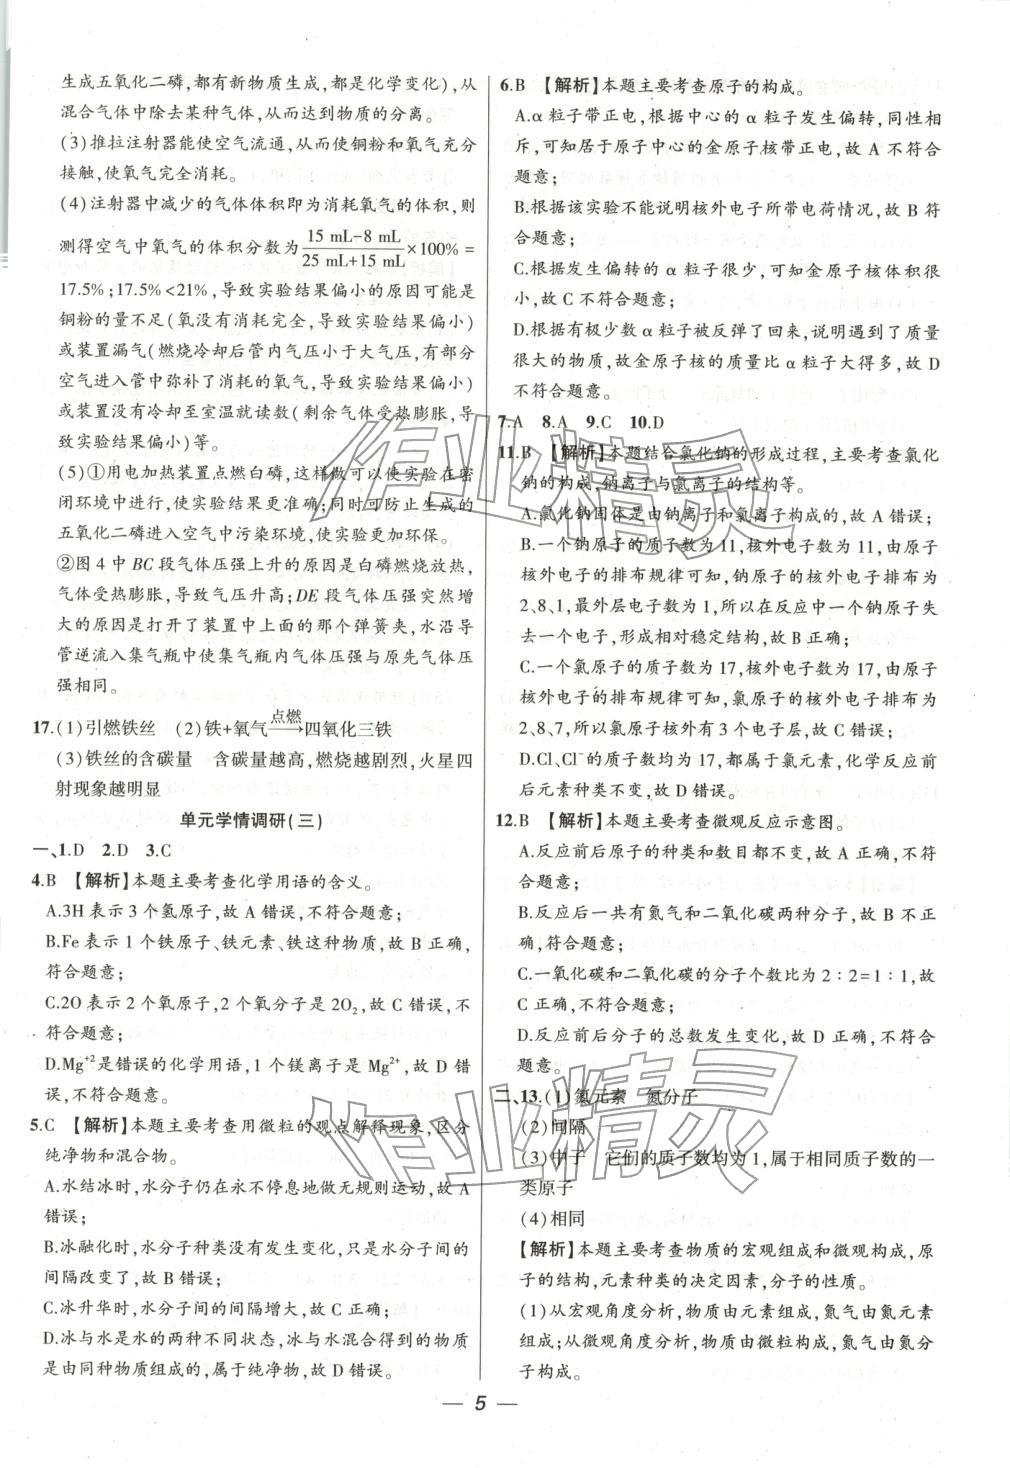 生成五氧化二磷,都有新物质生成,都是化学变化),从
混合气体中除去某种气体,从而达到物质的分离。
(3)推拉注射器能使空气流通,从而使铜粉和氧气充分
接触,使氧气完全消耗。
(4)注射器中减少的气体体积即为消耗氧气的体积,则
测得空气中氧气的体积分数为(15 mL-8 mL)/(25 mL+15 mL)×100%=
17.5%;17.5%<21%,导致实验结果偏小的原因可能是
铜粉的量不足(氧没有消耗完全,导致实验结果偏小)
或装置漏气(燃烧冷却后管内气压小于大气压,有部分
空气进入管中弥补了消耗的氧气,导致实验结果偏小)
或装置没有冷却至室温就读数(剩余气体受热膨胀,导
致实验结果偏小)等。
(5)①用电加热装置点燃白磷,这样做可以使实验在密
闭环境中进行,使实验结果更准确;同时可防止生成的
五氧化二磷进入空气中污染环境,使实验更加环保。
②图4中BC段气体压强上升的原因是白磷燃烧放热,
气体受热膨胀,导致气压升高;DE段气体压强突然增
大的原因是打开了装置中上面的那个弹簧夹,水沿导
管逆流入集气瓶中使集气瓶内气体压强与原先气体压
强相同。
17.(1)引燃铁丝 (2)铁+氧气 点燃→ 四氧化三铁
(3)铁丝的含碳量 含碳量越高,燃烧越剧烈,火星四
射现象越明显
单元学情调研(三)
一、1.D 2.D 3.C
4.B 【解析】本题主要考查化学用语的含义。
A.3H表示3个氢原子,故A错误,不符合题意;
B.Fe表示1个铁原子、铁元素、铁这种物质,故B正确,
符合题意;
C.2O表示2个氧原子,2个氧分子是2O₂,故C错误,不
符合题意;
D.Mg⁺²是错误的化学用语,1个镁离子是Mg²⁺,故D错
误,不符合题意。
5.C 【解析】本题主要考查用微粒的观点解释现象,区分
纯净物和混合物。
A.水结冰时,水分子仍在不停息地做无规则运动,故A
错误;
B.冰融化时,水分子种类没有发生变化,只是水分子间的
间隔改变了,故B错误;
C.冰升华时,水分子间的间隔增大,故C正确;
D.冰与水是水的两种不同状态,冰与水混合得到的物质
是由同种物质组成的,属于纯净物,故D错误。
6.B 【解析】本题主要考查原子的构成。
A.α粒子带正电,根据中心的α粒子发生偏转,同性相
斥,可知居于原子中心的金原子核带正电,故A不符合
题意;
B.根据该实验不能说明核外电子所带电荷情况,故B符
合题意;
C.根据发生偏转的α粒子很少,可知金原子核体积很
小,故C不符合题意;
D.根据有极少数α粒子被反弹了回来,说明遇到了质量
很大的物质,故金原子核的质量比α粒子大得多,故D
不符合题意。
7.A 8.A 9.C 10.D
11.B 【解析】本题结合氯化钠的形成过程,主要考查氯化
钠的构成,钠离子与氯离子的结构等。
A.氯化钠固体是由钠离子和氯离子构成的,故A错误;
B.一个钠原子的质子数为11,核外电子数为11,由原子
核外电子的排布规律可知,钠原子的核外电子排布为
2、8、1,最外层电子数为1,所以在反应中一个钠原子失
去一个电子,形成相对稳定结构,故B正确;
C.一个氯原子的质子数为17,核外电子数为17,由原子
核外电子的排布规律可知,氯原子的核外电子排布为
2、8、7,所以氯原子核外有3个电子层,故C错误;
D.Cl、Cl⁻的质子数均为17,都属于氯元素,化学反应前
后元素种类不变,故D错误。
12.B 【解析】本题主要考查微观反应示意图。
A.反应前后原子的种类和数目都不变,故A正确,不符
合题意;
B.反应后一共有氮气和二氧化碳两种分子,故B不正
确,符合题意;
C.一氧化碳和二氧化碳的分子个数比为2∶2=1∶1,故
C正确,不符合题意;
D.反应前后分子的总数发生变化,故D正确,不符合
题意。
二、13.(1)氮元素 氮分子
(2)间隔
(3)中子 它们的质子数均为1,属于相同质子数的一
类原子
(4)相同
【解析】本题主要考查物质的宏观组成和微观构成,原
子的结构,元素种类的决定因素,分子的性质。
(1)从宏观角度分析,物质由元素组成,氮气由氮元素
组成;从微观角度分析,物质由微粒构成,氮气由氮分
子构成。
5
作业精灵
作业精灵